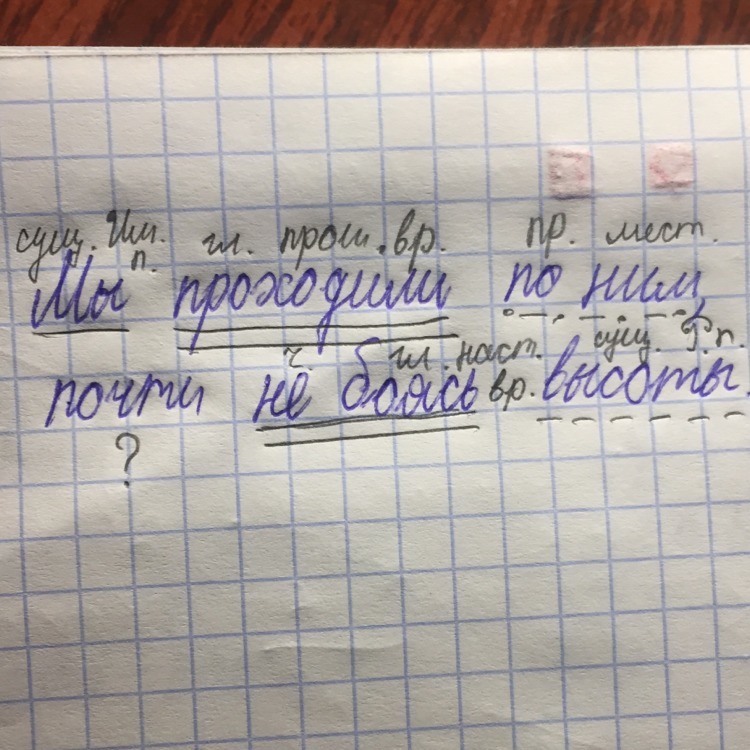 сущ. Им. п. гл. прош. вр. пр. мест.
Мы проходили по ним,
ч. гл. наст. вр. сущ. Р. п.
почти не боясь высоты.
?